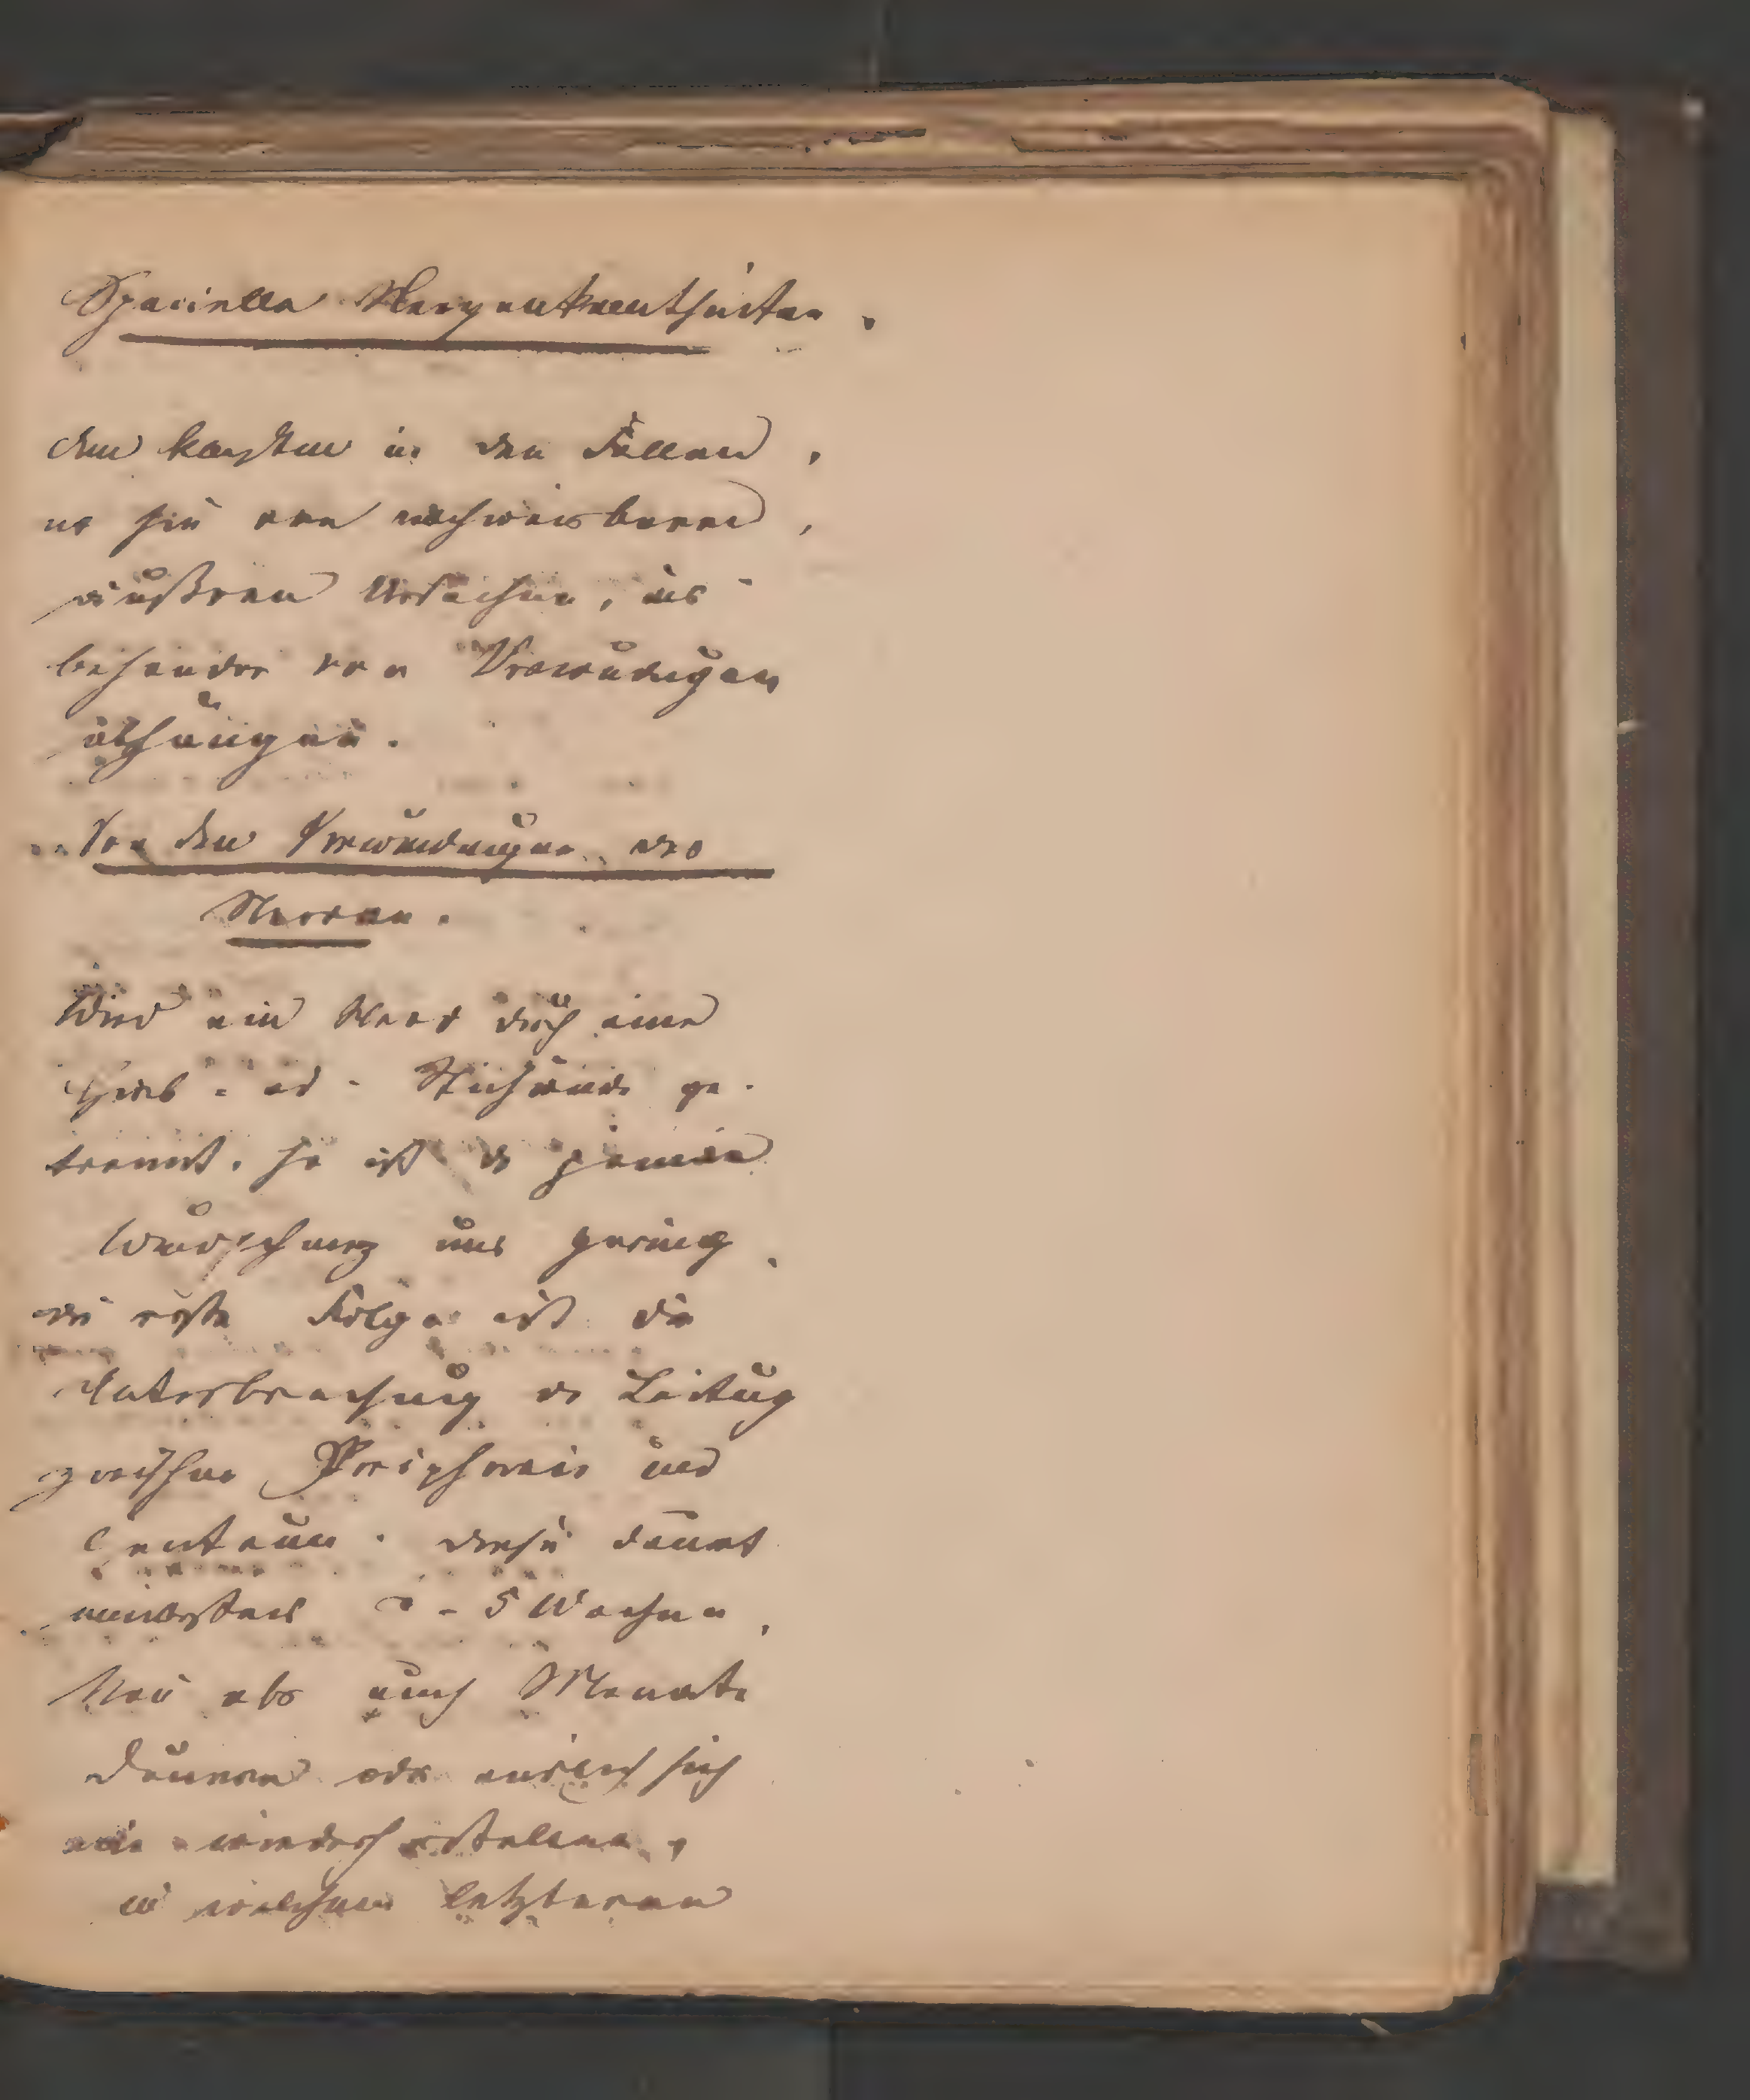 Specielle Nervenkrankheiten.
in den Fällen,
wo sie von nachweisbaren,
äußeren Ursachen, ins-
besonder von Verwundungen
abhängen.
Von den Verwundungen der
Nerven.
Wird ein Nerv durch eine
Hieb- od. Stichwunde ge-
trennt, so ist der
Wundschmerz nur gering,
die erste Folge ist die
Unterbrechung der Leitung
zwischen Peripherie und
Centrum. diese dauert
mindestens - 5 Wochen,
kann aber auch Monate
dauern oder endlich sich
nie wiederherstellen,
in welchem letzteren